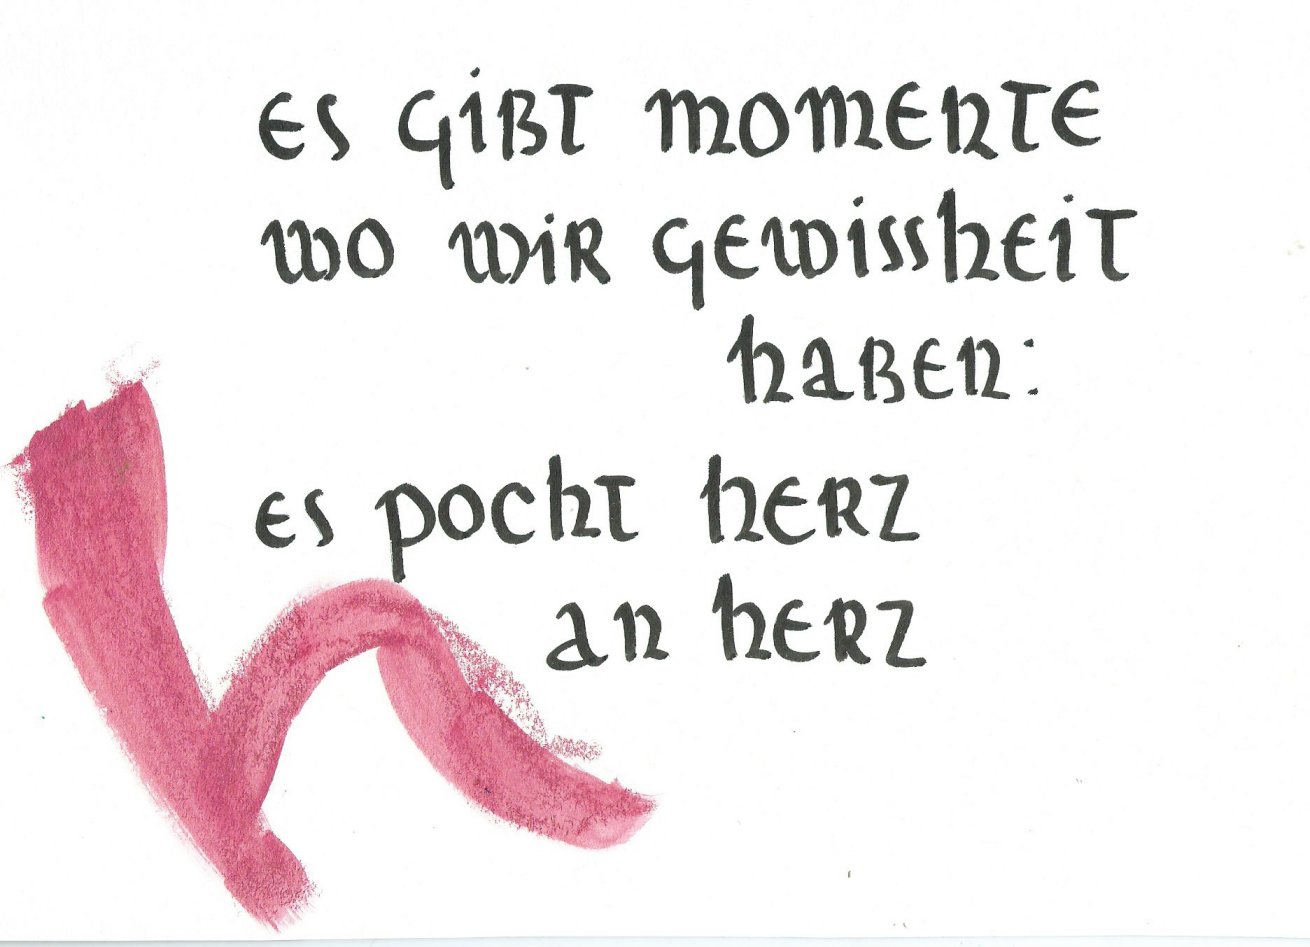 es gibt momente
wo wir gewissheit
haben:
es pocht herz
an herz
h